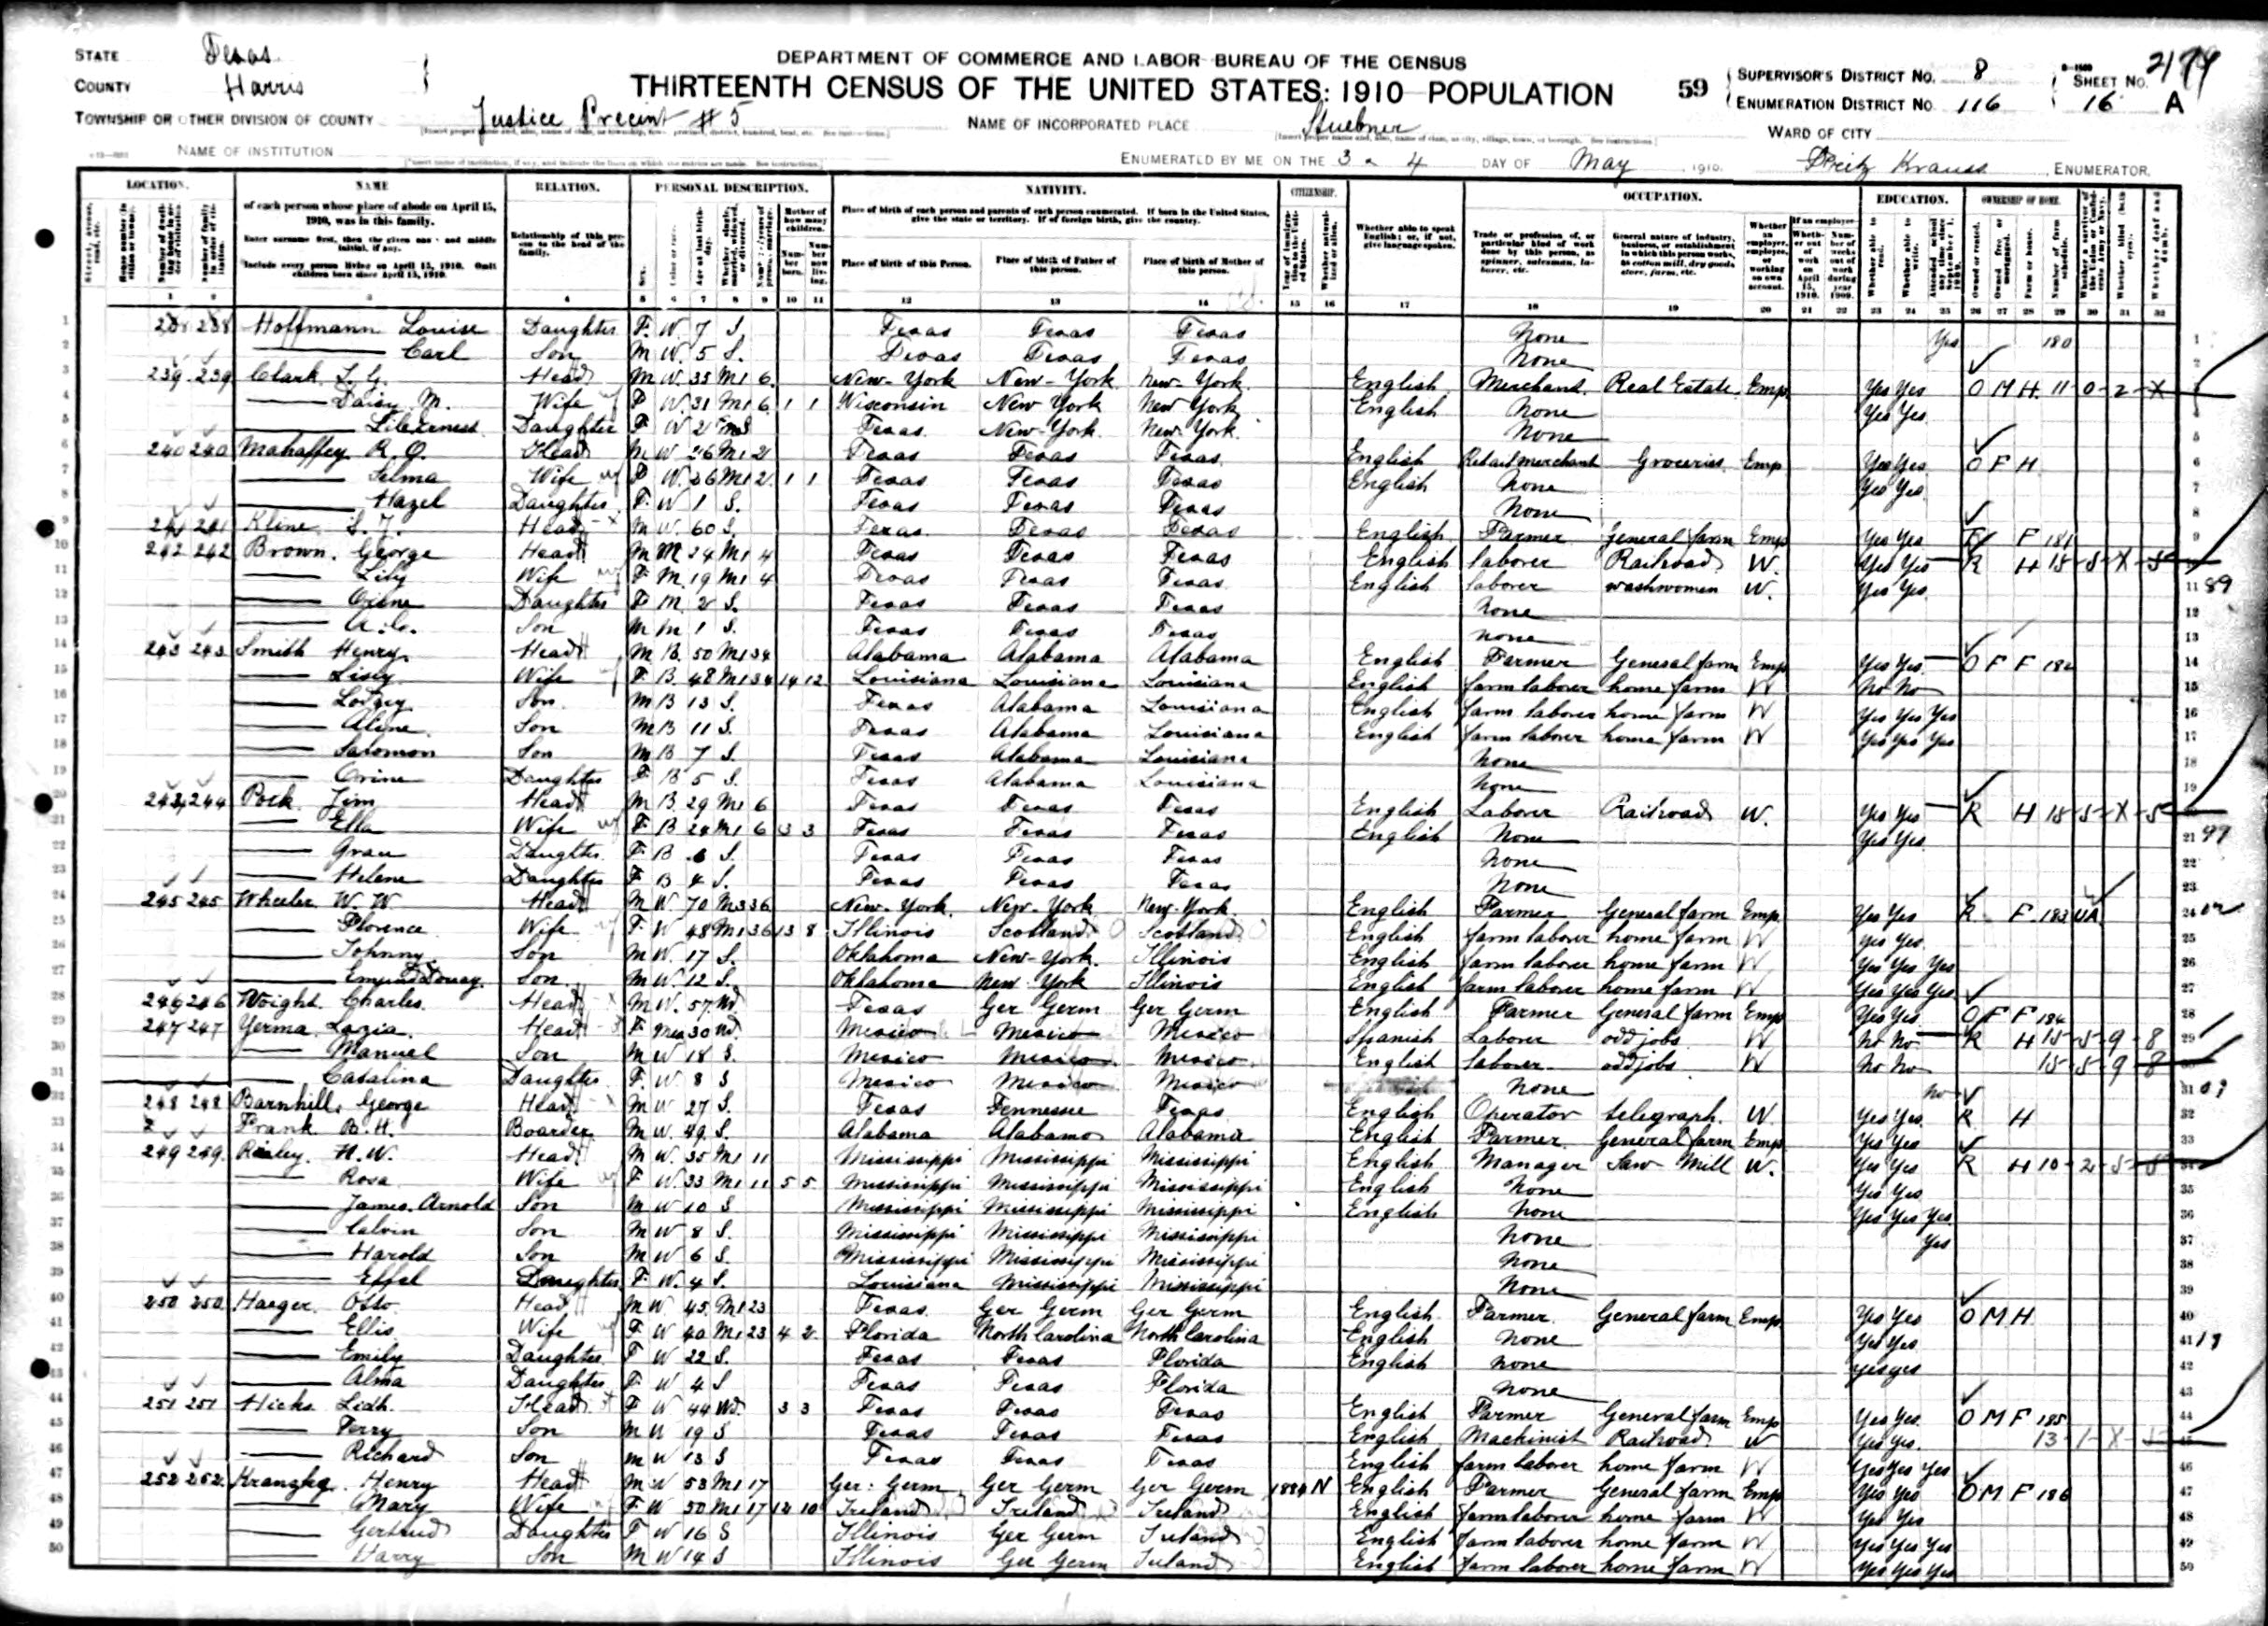 STATE Texas
COUNTY Harris
TOWNSHIP OR OTHER DIVISION OF COUNTY Justice Precint # 5
NAME OF INSTITUTION
DEPARTMENT OF COMMERCE AND LABOR-BUREAU OF THE CENSUS
THIRTEENTH CENSUS OF THE UNITED STATES: 1910 POPULATION
NAME OF INCORPORATED PLACE Stuebner
ENUMERATED BY ME ON THE 3 4 DAY OF May 1910. Krauss ENUMERATOR.
59 SUPERVISOR'S DISTRICT No. 8 SHEET No.
ENUMERATION DISTRICT No 116 16 A
WARD OF CITY
LOCATION. NAME RELATION. PERSONAL DESCRIPTION. NATIVITY. CITIZENSHIP. OCCUPATION. EDUCATION. OWNERSHIP OF HOME.
of each person whose place of abode on April 15, 1910, was in this family.
Place of birth of this Person. Place of birth of Father of this person. Place of birth of Mother of this person.
1 238 Hoffmann Louise Daughter F W 7 S. Texas Texas Texas None Yes 180
2 Carl Son M W. 5 S. Texas Texas Texas None
3 239 239 Clark L. G. Head M W. 35 M1 6 New-York New-York New-York English Merchant Real Estate Emp Yes Yes O M H 11-0-2-X
4 Daisy M. Wife F W. 31 M1 6 1 1 Wisconsin New York New York English None Yes Yes
5 Daughter F W 2 S Texas New-York New-York None
6 240 240 Mahaffey R. O. Head M W 26 M1 2 Texas Texas Texas English Retail merchant Groceries Emp Yes Yes O F H
7 Selma Wife F W. 26 M1 2 1 1 Texas Texas Texas English None Yes Yes
8 Hazel Daughter F W 1 S. Texas Texas Texas None
9 241 241 Kline S. J. Head M W. 60 S. Texas Texas Texas English Farmer General farm Emp Yes Yes F 181
10 242 242 Brown. George Head M M 24 M1 4 Texas Texas Texas English laborer Railroad W. Yes Yes R H 15-5-X-5
11 Lily Wife F M. 19 M1 4 Texas Texas Texas English laborer washwomen W. Yes Yes 89
12 Daughter F M 2 S. Texas Texas Texas None
13 Son M M 1 S. Texas Texas Texas none
14 243 243 Smith Henry Head M B. 50 M1 34 Alabama Alabama Alabama English Farmer General farm Emp Yes Yes O F F 182
15 Lisiy Wife F B. 48 M1 34 14 12 Louisiana Louisiana Louisiana English farm laborer home farm W No No
16 Son M B 13 S. Texas Alabama Louisiana English farm laborer home farm W Yes Yes Yes
17 Aline Son M B 11 S. Texas Alabama Louisiana English farm laborer home farm W Yes Yes Yes
18 Salomon Son M B 7 S. Texas Alabama Louisiana None
19 Orine Daughter F B 5 S. Texas Alabama Louisiana None
20 244 244 Pock Jim Head M B. 29 M1 6 Texas Texas Texas English Laborer Railroad W. Yes Yes R H 15-5-X-5
21 Ella Wife F B 24 M1 6 3 3 Texas Texas Texas English None Yes Yes 99
22 Daughter F B 6 S. Texas Texas Texas None
23 Helene Daughter F B 4 S. Texas Texas Texas None
24 245 245 Wheeler W. W. Head M W 70 36 New-York. New-York New-York English Farmer General farm Emp Yes Yes R F 183 UA
25 Florence Wife F W 48 M1 36 13 8 Illinois Scotland Scotland English farm laborer home farm W Yes Yes
26 Johnny Son M W. 17 S. Oklahoma New-York Illinois English farm laborer home farm W Yes Yes Yes
27 Son M W. 12 S. Oklahoma New York Illinois English farm laborer home farm W Yes Yes Yes
28 246 246 Wright Charles Head M W. 57 Wd Texas Ger Germ Ger Germ English Farmer General farm Emp Yes Yes O F F 184
29 247 247 Yerma Lazia Head F Mex 30 Wd. Mexico Mexico Mexico Spanish Laborer odd jobs W No No R H 15-5-9-8
30 Manuel Son M W 18 S. Mexico Mexico Mexico English laborer odd jobs W No No 15-5-9-8
31 Catalina Daughter F. W 8 S Mexico Mexico Mexico None no
32 248 248 Barnhill, George Head M W 27 S. Texas Tennessee Texas English Operator telegraph. W. Yes Yes R H
33 Frank B. H. Boarder M W. 49 S. Alabama Alabama Alabama English Farmer General farm Emp Yes Yes
34 249 249 H. W. Head M W. 35 M1 11 Mississippi Mississippi Mississippi English Manager Saw Mill W. Yes Yes R H 10-2-5-8
35 Rosa Wife F W. 33 M1 11 5 5 Mississippi Mississippi Mississippi English None Yes Yes
36 James. Arnold Son M W 10 S Mississippi Mississippi Mississippi English None Yes Yes Yes
37 Calvin Son M W 8 S. Mississippi Mississippi Mississippi None Yes
38 Harold Son M W 6 S. Mississippi Mississippi Mississippi None
39 Effel Daughter F. W. 4 S. Louisiana Mississippi Mississippi None
40 250 250 Haeger Otto Head M W 45. M1 23 Texas Ger Germ Ger Germ English Farmer General farm Emp Yes Yes O M H
41 Ellis Wife F W 40 M1 23 4 2 Florida North Carolina North Carolina English None Yes Yes
42 Emily Daughter F W 22 S. Texas Texas Florida English none yes yes
43 Alma Daughter F W 4 S Texas Texas Florida none
44 251 251 Hicks Lidh. Head F W 44 Wd. 3 3 Texas Texas Texas English Farmer General farm Emp Yes Yes O M F 185
45 Perry Son M W 19 S Texas Texas Texas English Machinist Railroad W Yes Yes.
46 Richard Son M W 13 S Texas Texas Texas English farm laborer home farm W Yes Yes Yes
47 252 252 Henry Head M W 53 M1 17 Ger: Germ Ger Germ Ger Germ 1884 N English Farmer General farm Emp Yes Yes O M F 186
48 Mary Wife F W 50 M1 17 12 10 Ireland Ireland Ireland English farm laborer home farm W Yes Yes
49 Gertrud Daughter F W 16 S Illinois Ger Germ Ireland English farm laborer home farm W Yes Yes Yes
50 Harry Son M W 14 S Illinois Ger Germ Ireland English farm laborer home farm W Yes Yes Yes